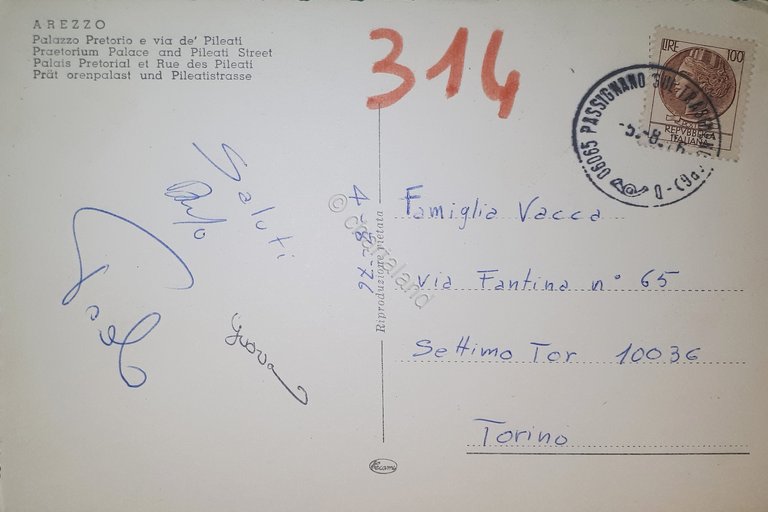 AREZZO
Palazzo Pretorio e via de' Pileati
Praetorium Palace and Pileati Street
Palais Pretorial et Rue des Pileati
Prät orenpalast und Pileatistrasse
314
LIRE 100
REPVBBLICA
ITALIANA
06065 PASSIGNANO SUL
Saluti
Paolo
4-8-76
© cartaland
Riproduzione vietata
Famiglia Vacca
via Fantina n° 65
Settimo Tor 10036
Torino